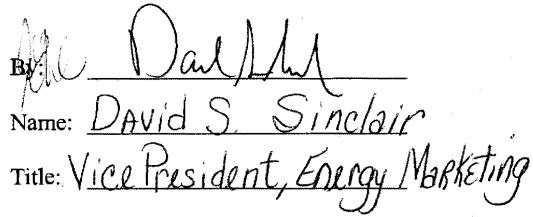 By:
Name: David S. Sinclair
Title: Vice President, Energy Marketing